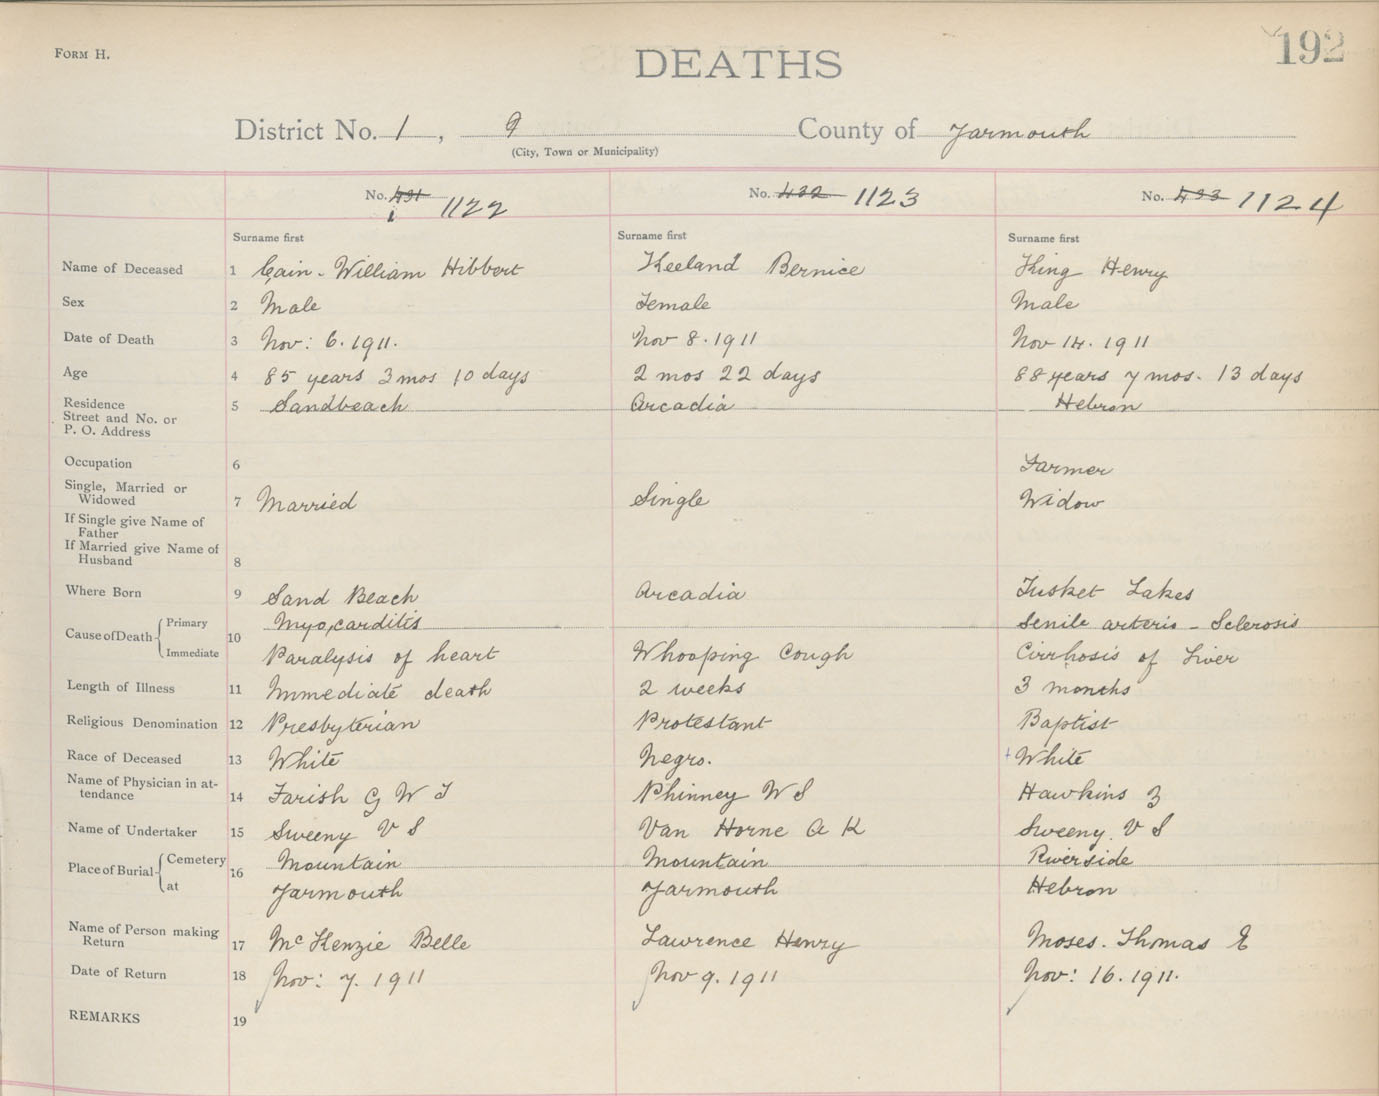 FORM H.
DEATHS
192
District No. 1, 9 County of Yarmouth
(City, Town or Municipality)
No. 431 1122 No. 432 1123 No. 433 1124
Surname first Surname first Surname first
Name of Deceased 1 Cain - William Hibbert Keeland Bernice King Henry
Sex 2 Male Female Male
Date of Death 3 Nov: 6. 1911. Nov 8. 1911 Nov 14. 1911
Age 4 85 years 3 mos 10 days 2 mos 22 days 88 years 7 mos. 13 days
Residence 5 Sandbeach Arcadia Hebron
Street and No. or
P. O. Address
Occupation 6 Farmer
Single, Married or
Widowed 7 Married Single Widow
If Single give Name of
Father
If Married give Name of
Husband 8
Where Born 9 Sand Beach Arcadia Tusket Lakes
Cause of Death Primary 10 Myo,carditis Senile arterio - Sclerosis
Immediate Paralysis of heart Whooping Cough Cirrhosis of Liver
Length of Illness 11 Immediate death 2 weeks 3 months
Religious Denomination 12 Presbyterian Protestant Baptist
Race of Deceased 13 White Negro. White
Name of Physician in at-
tendance 14 Farish G W T Phinney W S Hawkins Z
Name of Undertaker 15 Sweeny V S Van Horne A K Sweeny V S
Place of Burial Cemetery 16 Mountain Mountain Riverside
at Yarmouth Yarmouth Hebron
Name of Person making
Return 17 McKenzie Belle Lawrence Henry Moses. Thomas E
Date of Return 18 Nov: 7. 1911 Nov 9. 1911 Nov: 16. 1911.
REMARKS 19